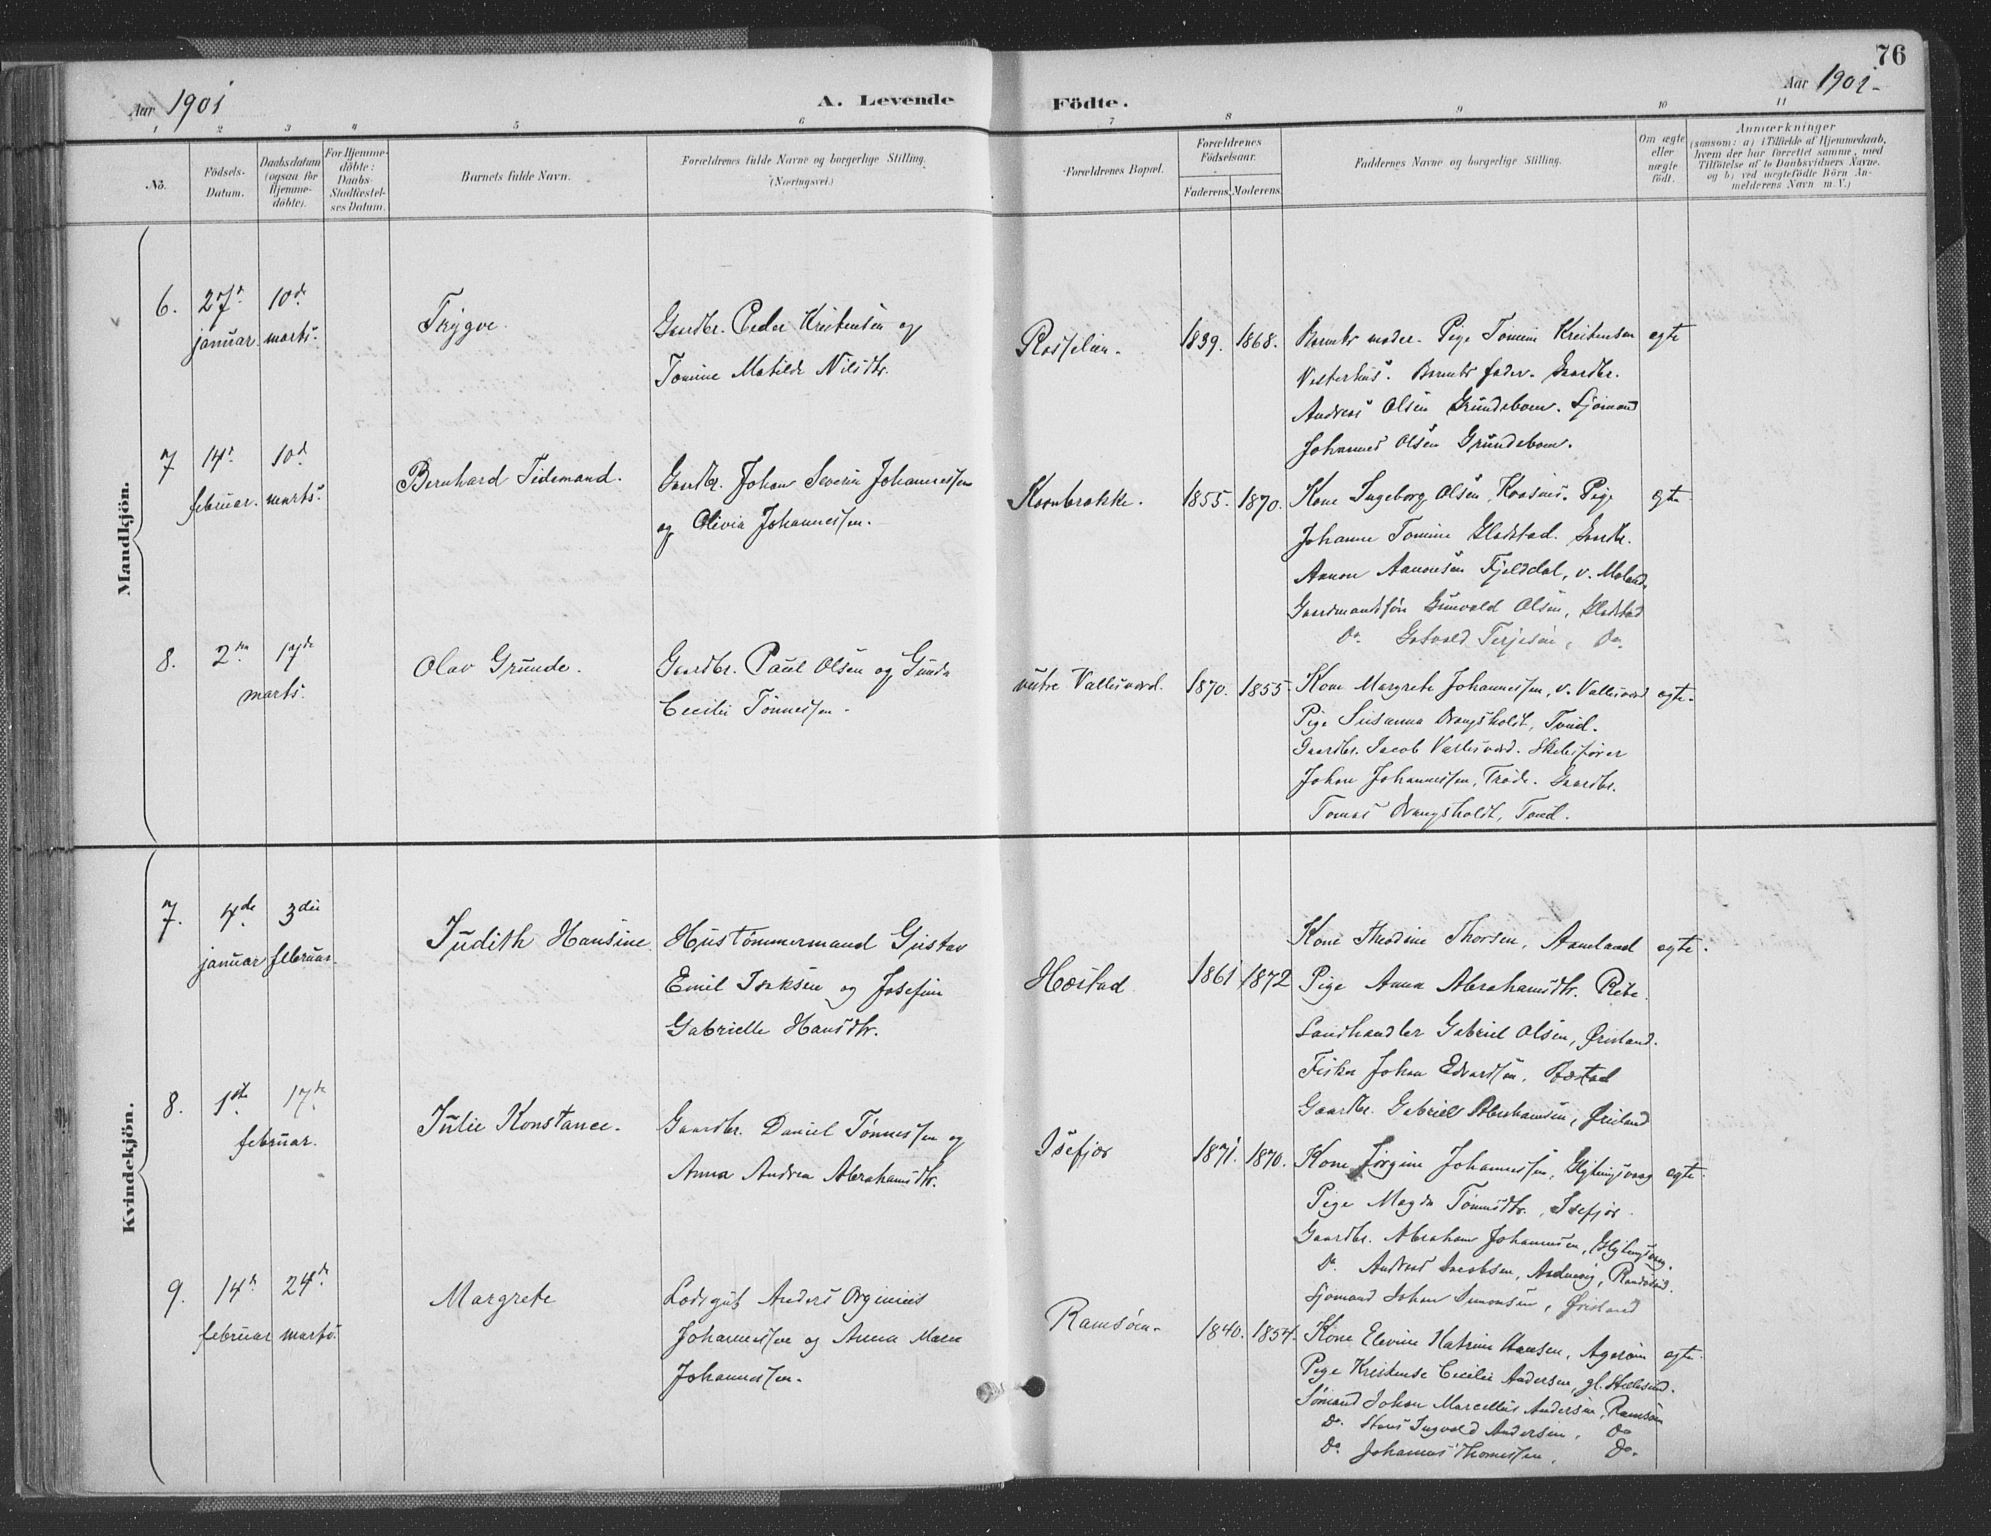 76
Aar 1901
A. Levende
Födte.
Aar 1901.
1 2 3 4 5 6 7 8 9 10 11
No.
Födsels-
Datum.
Daabsdatum
(ogsaa for
Hjemme-
döbte).
For Hjemme-
döbte:
Daabs-
Stadfæstel-
ses Datum.
Barnets fulde Navn.
Forældrenes fulde Navne og borgerlige Stilling.
(Næringsvei.)
Forældrenes Bopæl.
Forældrenes
Födselsaar.
Faderens. Moderens.
Faddernes Navne og borgerlige Stilling.
Om ægte
eller
uægte
födt.
Anmærkninger
(saasom: a) i Tilfælde af Hjemmedaab,
hvem der har forrettet samme, med
Tilföielse af to Daabsvidners Navne,
og b) ved uægtefödte Börn An-
melderens Navn m. V.)
Mandkjön.
6.
27de
januar.
10de
marts.
Trygve.
Gaardbr. Peder Kristensen og
Tomine Matilde Nilsdtr.
1839. 1868.
Barnets moder. Pige Tomine Kristensen
Vesterhus. Barnets fader. Gaardbr.
Andreas Olsen Grundebom. Sjömand
Johannes Olsen Grundebom.
egte
7
14de
februar.
10de
marts.
Bernhard Tidemand.
Gaardbr. Johan Severin Johannessen
og Olivia Johannessen.
1855. 1870.
Kone Ingeborg Olsen, Pige
Johanne Tomine Gladstad. Gaardbr.
Aanon Aanonsen Fjelddal, v. Moland
Gaardmandssøn Grunvald Olsen, Gladstad
Do. Gotvald Terjesen, Do.
egte
8.
2den
marts.
17de
Olav Grunde.
Gaardbr. Paul Olsen og Gunda
Cecilie Tönnessen.
vestre Vallesværd.
1870. 1855
Kone Margrete Johannessen, v. Vallesværd
Pige Susanna Drangsholt, Tveid.
Gaardbr. Jacob Vallesværd. Skibsfører
Johan Johannessen, Gaardbr.
Tomas Drangsholt, Tveid.
egte.
Kvindekjön.
7.
4de
januar
3die
februar.
Judith Hansine.
Hustømmermand Gustav
Emil Isaksen og Josefine
Gabrielle Hansdtr.
Hæstad
1861 1872
Kone Theodine Thorsen, Aameland
Pige Anna Abrahamsdtr.
Landhandler Gabriel Olsen, Øvsland.
Fisker Johan Edvardsen,
Gaardbr. Gabriel Abrahamsen, Øvsland
egte.
8.
1ste
februar.
17de
Julie Konstance.
Gaardbr. Daniel Tönnessen og
Anna Andrea Abrahamsdtr.
Isefjær
1871. 1870.
Kone Jörgine Johannessen,
Pige Magda Tönnesdtr., Isefjær.
Gaardbr. Abraham Johannesen,
Do. Andreas Jacobsen,
Sjömand Johan Simonsen, Øvsland
egte.
9.
14de
februar
24de
marts.
Margrete
Lodsgut Anders Orginius
Johannessen og Anna Maren
Johannessen.
Ramsöen.
1840. 1854.
Kone Elevine Katrine Hansen, Ageröen
Pige Kristense Cecilie Andersen, gl. Hellesund.
Sömand Johan Marcellius Andersen, Ramsöen
Do. Hans Ingvald Andersen, Do
Do. Johannes Thomessen, Do.
egte.